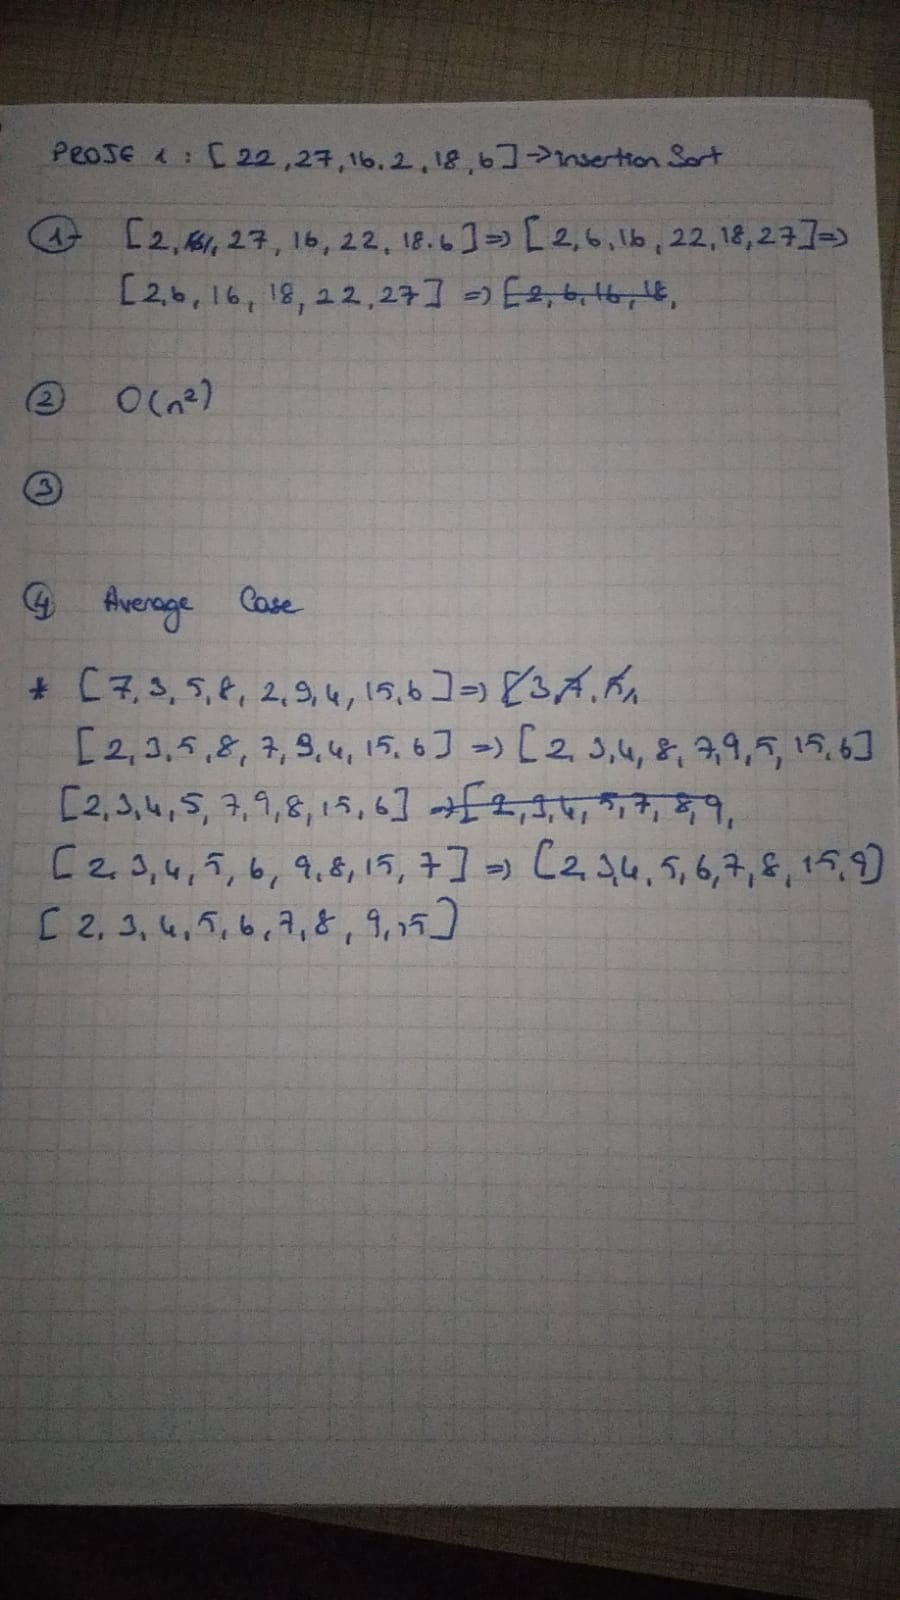 PROJE 1 : [ 22, 27, 16. 2, 18, 6 ] -> insertion Sort
1- [ 2, 27, 16, 22, 18. 6 ] => [ 2, 6, 16, 22, 18, 27 ] =>
[ 2, 6, 16, 18, 22, 27 ] => [ 2, 6, 16, 18,
2 O(n²)
3
4 Average Case
* [ 7, 3, 5, 8, 2, 9, 4, 15, 6 ] => [ 3
[ 2, 3, 5, 8, 7, 9, 4, 15. 6 ] => [ 2 3, 4, 8, 7, 9, 5, 15, 6 ]
[ 2, 3, 4, 5, 7, 9, 8, 15, 6 ] => [ 2, 3, 4, 5, 7, 8, 9,
[ 2, 3, 4, 5, 6, 9, 8, 15, 7 ] => [ 2, 3, 4, 5, 6, 7, 8, 15, 9 ]
[ 2, 3, 4, 5, 6, 7, 8, 9, 15 ]